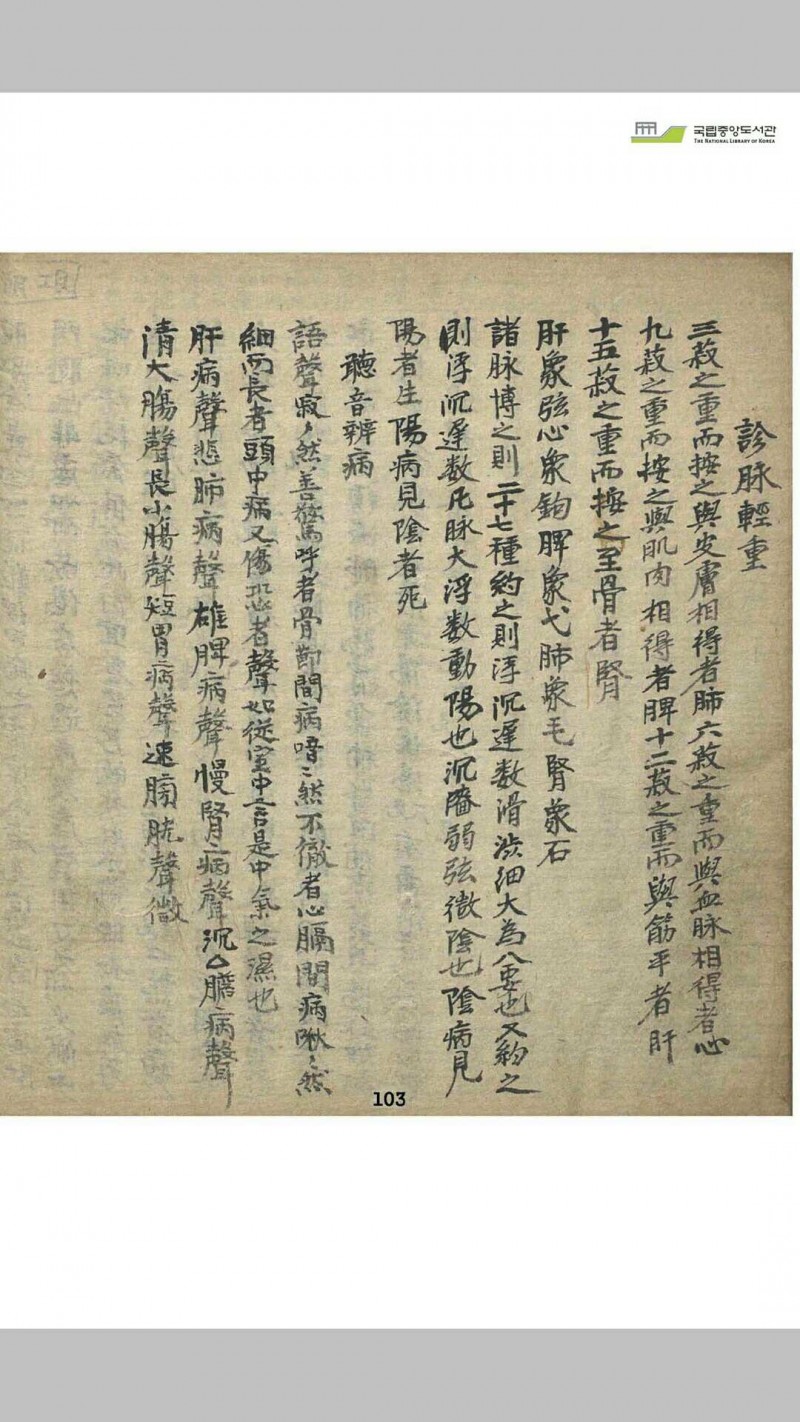 국립중앙도서관
THE NATIONAL LIBRARY OF KOREA
診脉輕重
三菽之重而按之與皮膚相得者肺六菽之重而與血脉相得者心
九菽之重而按之與肌肉相得者脾十二菽之重而與筋平者肝
十五菽之重而按之至骨者腎
肝象弦心象鉤脾象弋肺象毛腎象石
諸脉博之則二十七種約之則浮沉遲数滑澁细大為八要也又約之
則浮沉遲数凡脉大浮数動陽也沉濇弱弦微陰也陰病見
陽者生陽病見陰者死
聽音辨病
語聲寂々然善驚呼者骨節間病喑〻然不徹者心膈間病啾々然
細而長者頭中病又傷恐者聲如從室中言是中氣之濕也
肝病聲悲肺病聲雄脾病聲慢腎病聲沉膽病聲
清大膓聲長小膓聲短胃病聲速膀胱聲微
103